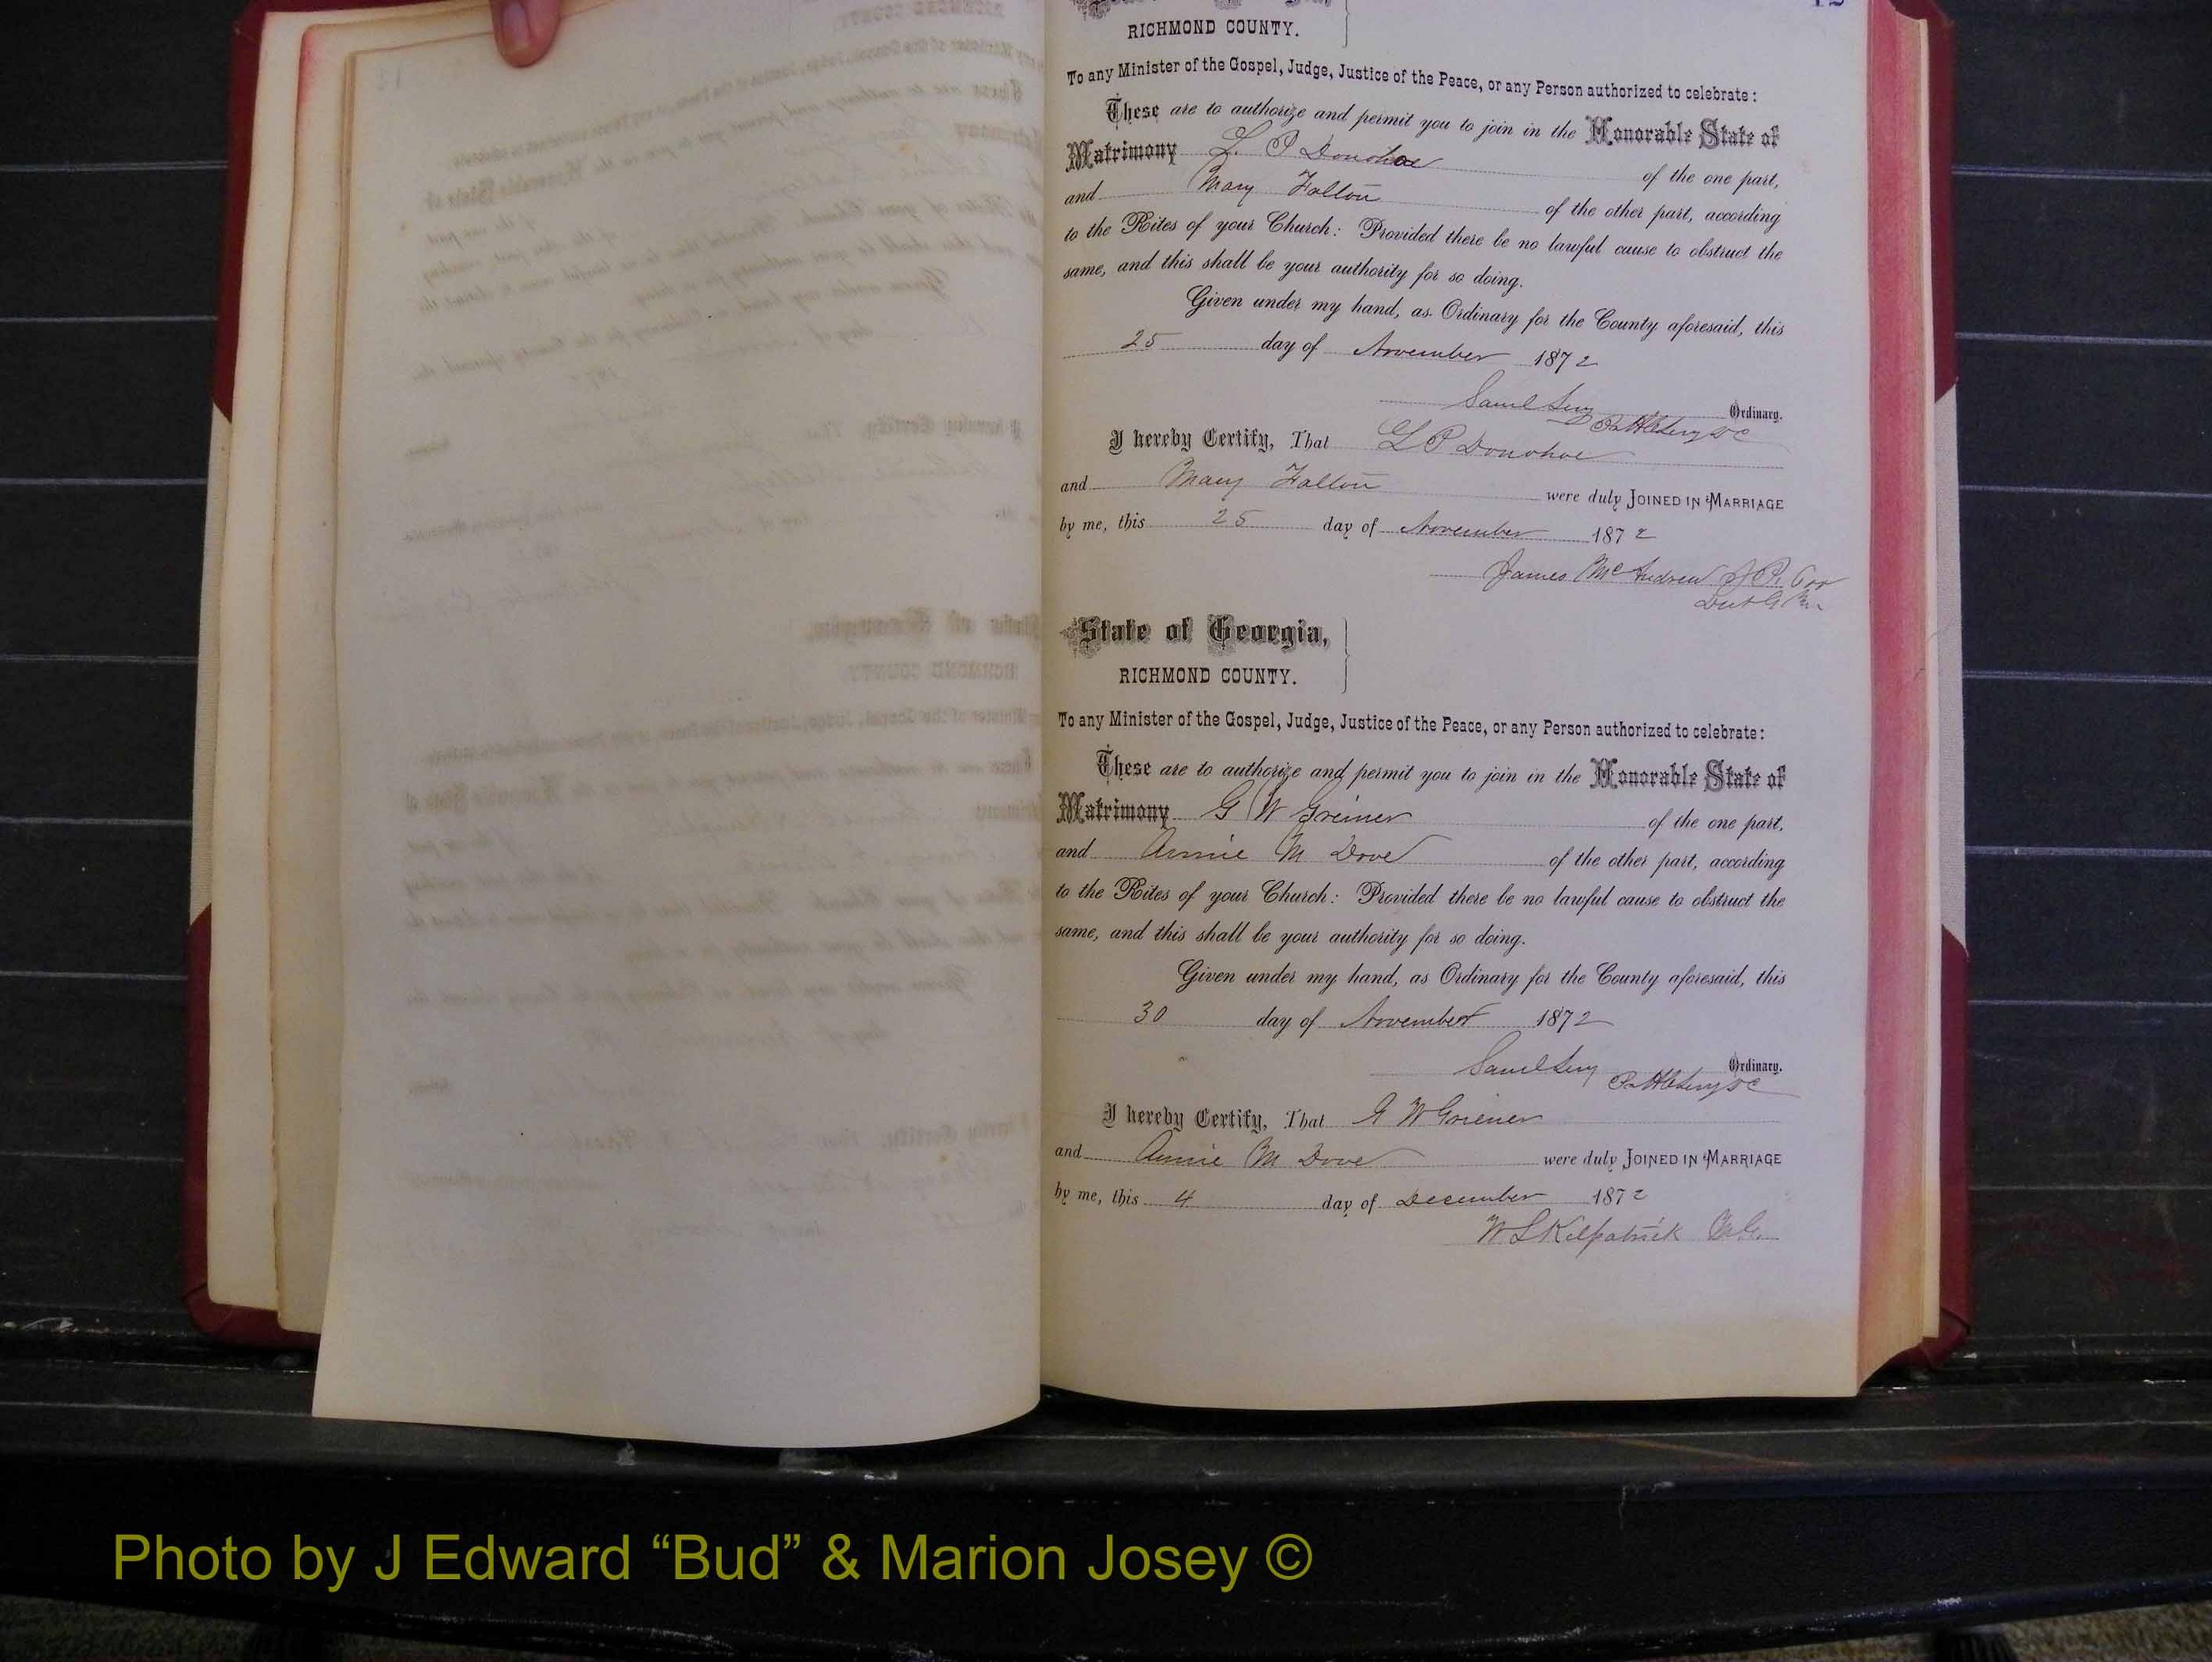 RICHMOND COUNTY.
To any Minister of the Gospel, Judge, Justice of the Peace, or any Person authorized to celebrate:
These are to authorize and permit you to join in the Honorable State of
Matrimony L. P Donohoe of the one part,
and Mary Fallon of the other part, according
to the Rites of your Church: Provided there be no lawful cause to obstruct the
same, and this shall be your authority for so doing.
Given under my hand, as Ordinary for the County aforesaid, this
25 day of November 1872
Saml Levy Ordinary.
I hereby Certify, That L P Donohoe
and Mary Fallon were duly JOINED IN MARRIAGE
by me, this 25 day of November 1872
James McAndrew J.P.
State of Georgia,
RICHMOND COUNTY.
To any Minister of the Gospel, Judge, Justice of the Peace, or any Person authorized to celebrate:
These are to authorize and permit you to join in the Honorable State of
Matrimony G W Greiner of the one part,
and Annie M Dove of the other part, according
to the Rites of your Church: Provided there be no lawful cause to obstruct the
same, and this shall be your authority for so doing.
Given under my hand, as Ordinary for the County aforesaid, this
30 day of November 1872
Saml Levy Ordinary.
I hereby Certify, That G W Griener
and Annie M Dove were duly JOINED IN MARRIAGE
by me, this 4 day of December 1872
W L Kilpatrick M.G.
Photo by J Edward “Bud” & Marion Josey ©